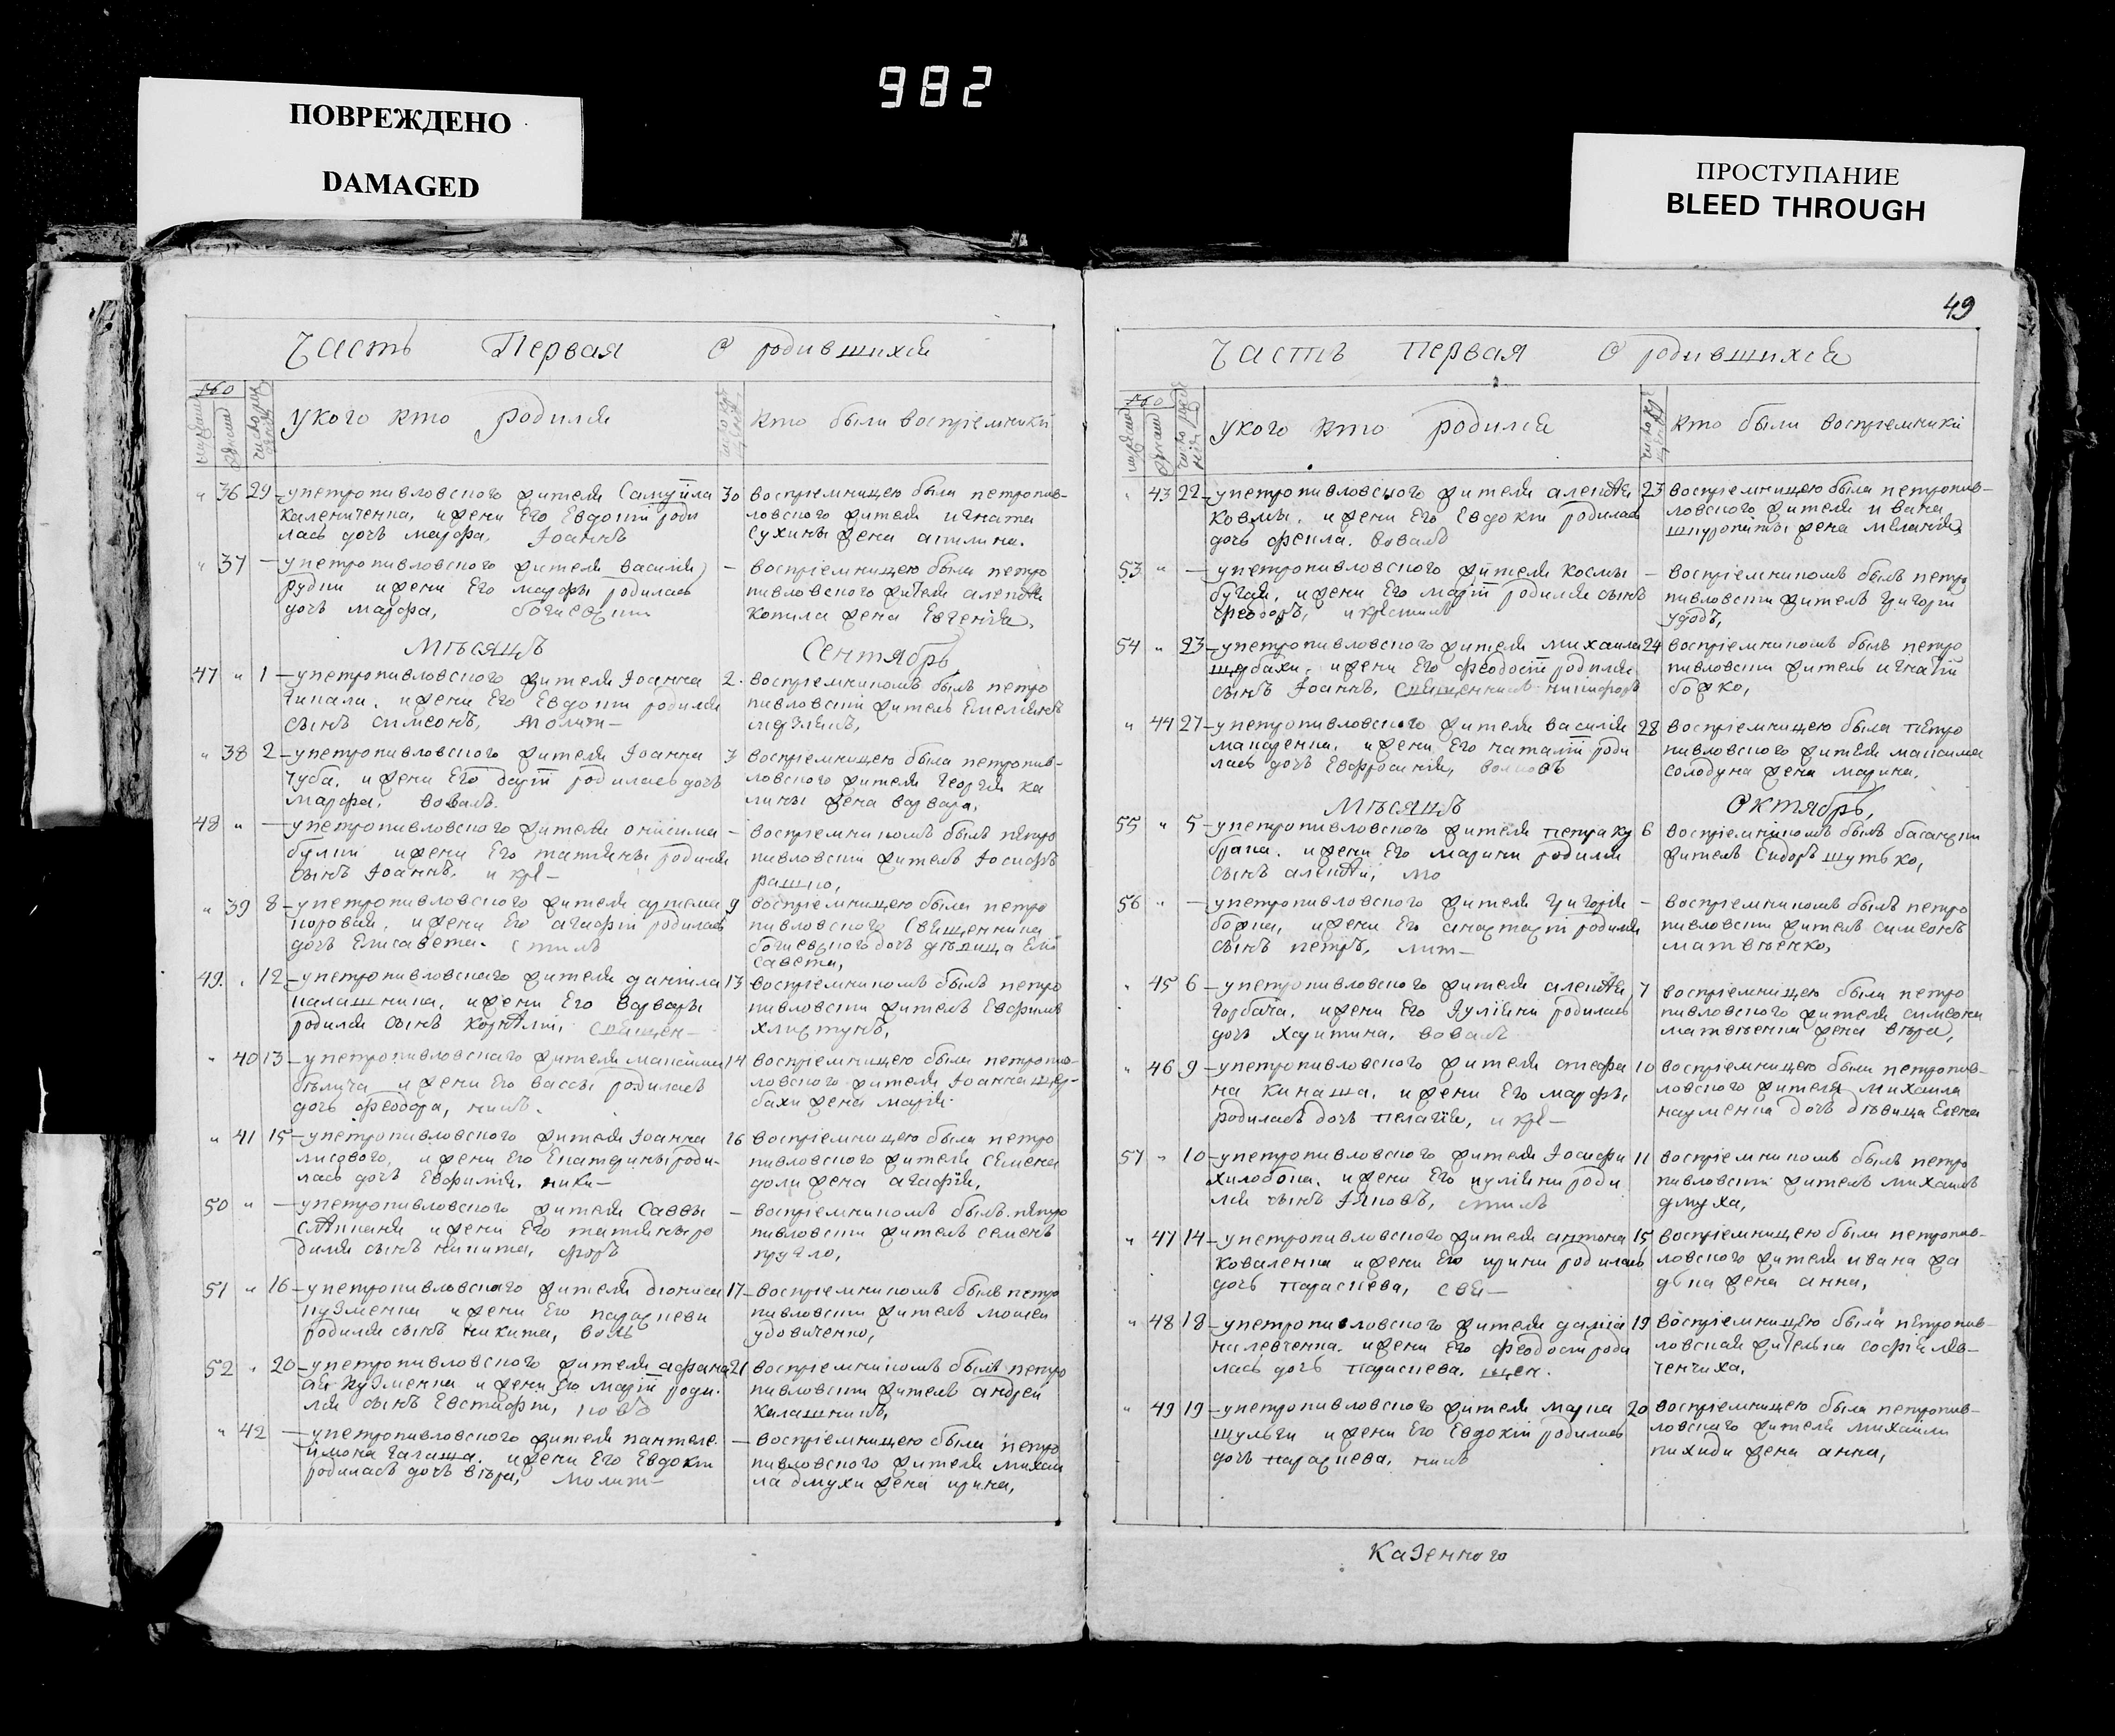 982
ПОВРЕЖДЕНО
DAMAGED
ПРОСТУПАНИЕ
BLEED THROUGH
Часть Первая О родившихся
укого кто родился
кто были воспрiемники
" 36 29 упетропавловского жителя Самуила
калениченка, ижени Его Евдокiи роди
лась дочь марфа, Iоаннъ
30 воспрiемницею была петропав-
ловского жителя игната
сухины жена акилина.
" 37 — упетропавловского жителя василiя
рудки ижени Его марфы родилась
дочь марфа,
— воспрiемницею была петро
павловского жителя алексѣя
копила жена Евгенiя,
Мѣсяцъ Сентябрь
47 " 1 упетропавловского жителя Iоанна
чипали, ижени Его Евдокiи родился
сынъ симеонъ, молит—
2 воспрiемникомъ былъ петро
павловскiй житель Емелiянъ
" 38 2 упетропавловского жителя Iоанна
чуба, ижени Его дарiи родилась дочь
марфа, ковалъ.
3 воспрiемницею была петропав-
ловского жителя георгiя ка
лины жена варвара,
48 " — упетропавловского жителя онисима
булки ижени Его татiяны родился
сынъ Iоаннъ, и кре—
— воспрiемникомъ былъ петро
павловскiй житель Iосифъ
рашко,
" 39 8 упетропавловского жителя артема
коровая, ижени Его агафiи родилась
дочь Елисавета.
9 воспрiемницею была петро
павловского священника
богаевского дочь дѣвица Ели
савета,
49 " 12 упетропавловского жителя данiила
калашника, ижени Его варвары
родился сынъ корнилiй, священ—
13 воспрiемникомъ былъ петро
павловскiй житель Евфимъ
хлистунъ,
" 40 13 упетропавловского жителя максима
бѣлича ижени Его вассы родилась
дочь феодора,
14 воспрiемницею была петропав-
ловского жителя Iоанна щер-
бахи жена марiя.
" 41 15 упетропавловского жителя Iоанна
лисового, ижени Его Екатерины роди-
лась дочь Евфимiя, ники—
16 воспрiемницею была петро
павловского жителя семена
доли жена агафiя,
50 " — упетропавловского жителя Саввы
слѣпканя ижени Его татiяны ро
дился сынъ никита,
— воспрiемникомъ былъ петро
павловскiй житель семенъ
кругло,
51 " 16 упетропавловского жителя дiонисiя
кузменка ижени Его параскеви
родился сынъ никита,
17 воспрiемникомъ былъ петро
павловскiй житель моисей
удовиченко,
52 " 20 упетропавловского жителя афана
сiя кузменка ижени Его марiи роди-
лся сынъ Евстафiй,
21 воспрiемникомъ былъ петро
павловскiй житель андрей
калашникъ,
" 42 — упетропавловского жителя пантеле
ймона галаша. ижени Его Евдокiи
родилась дочь вѣра, молит—
— воспрiемницею была петро
павловского жителя михаи
ла дмухи жена ирина,
49
Часть первая О родившихся
укого кто родился
кто были воспрiемники
" 43 22 упетропавловского жителя алексѣя
козмы, ижени Его Евдокiи родилась
дочь фекла. ковалъ
23 воспрiемницею была петропав-
ловского жителя ивана
шкуропата жена меланiя,
53 " — упетропавловского жителя космы
бугая, ижени Его марiи родился сынъ
феодоръ,
— воспрiемникомъ былъ петро
павловскiй житель григорiй
удодъ,
54 " 23 упетропавловского жителя михаила
щербахи, ижени Его феодосiи родился
сынъ Iоаннъ, священникъ никифоръ
24 воспрiемникомъ былъ петро
павловскiй житель игнатiй
божко,
" 44 27 упетропавловского жителя василiя
макаренка, ижени Его наталiи роди
лась дочь Евфросинiя,
28 воспрiемницею была петро
павловского жителя максима
солодуна жена марина,
Мѣсяцъ Октябрь,
55 " 5 упетропавловского жителя петра ку
брака. ижени Его марини родился
сынъ алексѣй, мо
6 воспрiемникомъ былъ
житель Сидоръ шутько,
56 " — упетропавловского жителя григорiя
божка, ижени Его анастасiи родился
сынъ петръ, лит—
— воспрiемникомъ былъ петро
павловскiй житель симеонъ
матвѣенко,
" 45 6 упетропавловского жителя алексѣя
горбача, ижени Его Iулiянни родилась
дочь харитина, ковалъ
7 воспрiемницею была петро
павловского жителя симеона
матвѣенка жена вѣра,
" 46 9 упетропавловского жителя стефа
на кинаша, ижени Его марфы
родилась дочь пелагiя, и кре—
10 воспрiемницею была петропав-
ловского жителя михаила
науменка дочь дѣвица Елена
57 " 10 упетропавловского жителя Iосифа
хилобока, ижени Его иулiянни роди
лся сынъ Iяковъ,
11 воспрiемникомъ былъ петро
павловскiй житель михаилъ
дмуха,
" 47 14 упетропавловского жителя антона
коваленка ижени Его ирини родилась
дочь параскева, свя—
15 воспрiемницею была петропав-
ловского жителя ивана
жена анна,
" 48 18 упетропавловского жителя данiи
ижени Его феодосiи роди
лась дочь параскева. щен.
19 воспрiемницею была петропав-
ловская жителька софiя лев-
ченчиха,
" 49 19 упетропавловского жителя марка
шульги ижени Его Евдокiи родилась
дочь параскева, никъ
20 воспрiемницею была петропав-
ловского жителя михаила
лихиди жена анна,
Казенного